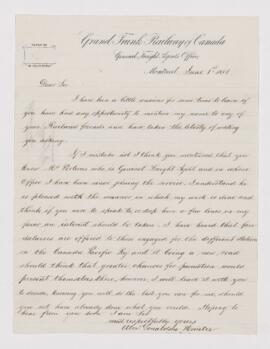 Grand Trunk Railway of Canada
General Freight Agents Office
Montreal June 1st 1881
Dear Sir
I have been a little anxious for some time to learn if
you have had any opportunity to mention my name to any of
your Railroad friends and have taken the liberty of writing
you asking
If I mistake not I think you mentioned that you
knew Mr Porteous who is General Freight Agent and in whose
Office I have been since joining the service. I understand he
is pleased with the manner in which my work is done and
think if you were to speak to, or drop him a few lines in my
favor, an interest should be taken. I have heard that fair
salaries are offered to those engaged for the different Stations
on the Canada Pacific Ry and it being a new road
should think that greater chances for promotion would
present themselves there, however, I will leave it with you
to decide, knowing you will do the best you can for me, should
you not have already done what you could. Hoping to
hear from you soon I am Sir
most respectfully yours
Allen Donaldson Hunter